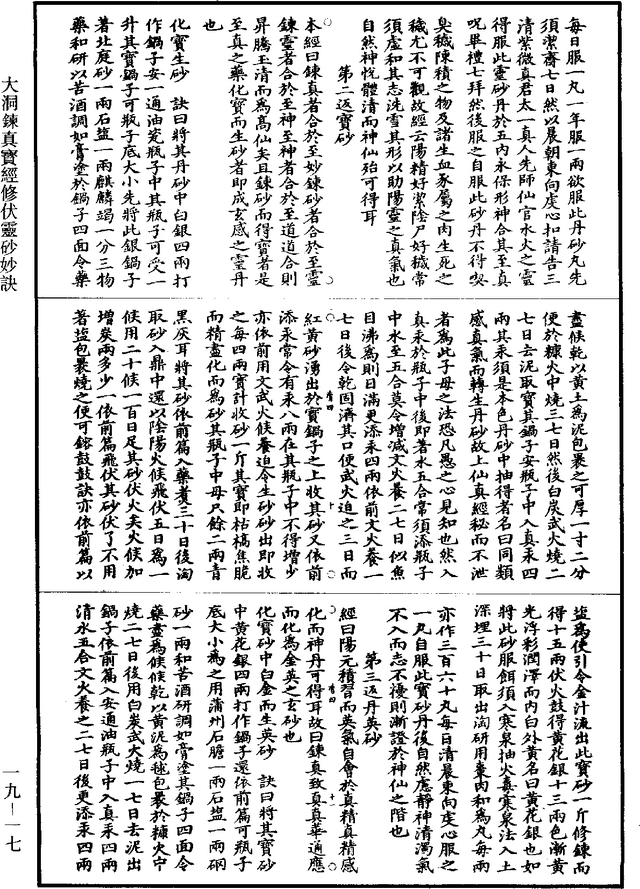 大洞鍊真寶經修伏靈砂妙訣
每日服一丸一年服一兩欲服此丹砂丸先
須潔齋七日然以晨朝東向虔心扣請告三
清紫微真君太一真人先師仙官水火之靈
得服此靈砂丹於五內永保形神合其至真
呪畢禮七拜然後服之自服此砂丹不得喫
臭穢陳積之物及諸生血豕屬之肉生死之
穢尤不可觀故經云陽精好潔陰尸好穢常
須虛和其志洗雪其形以助陽靈之真氣也
自然神悅體清而神仙殆可得耳
第二返寶砂
本經曰鍊真者合於至妙鍊砂者合於至靈
鍊靈者合於至神至神者合於至道道合則
昇騰玉清而為高仙矣且鍊砂而得寶者是
至真之藥化寶而生砂者即成玄感之靈丹
也
化寶生砂 訣曰將其丹砂中白銀四兩打
作鍋子安一通油瓷瓶子中其瓶子可受一
升其寶鍋子可瓶子底大小先將此銀鍋子
著北庭砂一兩石塩一兩麒麟竭一分三物
藥和研以苦酒調如膏塗於鍋子四面令藥
盡候乾以黃土為泥包裹之可厚一寸二分
便於糠火中燒三七日然後白炭武火燒二
七日去泥取寶其鍋子安瓶子中入真汞四
兩其汞須是本色丹砂中抽得者名曰同類
感真氣而轉生丹砂故上仙真經秘而不泄
者為此子母之法恐凡愚之心見知也然入
真汞於瓶子中後即著水五合常須添瓶子
中水至五合莫令增減文火養二七日似魚
目沸為則日滿更添汞四兩依前文火養一
七日後令乾固濟其口便武火迫之三日而
紅黃砂湧出於寶鍋子之上收其砂又依前
添汞常令有汞八兩在其瓶子中不得增少
亦依前用文武火候養迫令生砂砂出即收
之每四兩寶計收砂一斤其寶即枯槁焦脆
而精盡化而為砂其瓶子中母只餘二兩青
黑灰耳將其砂依前篇入藥煑三十日後淘
取砂入鼎中還以陰陽火候飛伏五日為一
候用二十候一百日足其砂伏火矣火候加
增炭兩多少一依前篇飛伏其砂伏了不用
著塩包裹燒之便可鎔鼓鼓訣亦依前篇以
塩為使引令金汁流出此寶砂一斤修鍊而
得十五兩伏火鼓得黃花銀十三兩色漸黃
光浮彩潤澤而內白外黃名曰黃花銀也如
將此砂服餌須入寒泉抽火毒寒泉法入土
深埋三十日取出淘研用棗肉和為丸每兩
亦作三百六十丸每日清晨東向虔心服之
一丸自服此寶砂丹後自然虛靜神清濁氣
不入而志不擾則漸證於神仙之階也
第三返丹英砂
經曰陽元積習而英氣自會於真精真精感
化而神丹可得耳故曰鍊真致真真華通應
而化為金英之玄砂也
化寶砂中白金而生英砂 訣曰將其寶砂
中黃花銀四兩打作鍋子還依前篇可瓶子
底大小為之用蒲州石膽一兩石塩一兩硇
砂一兩和苦酒研調如膏塗其鍋子四面令
藥盡為候候乾以黃泥為毬包裹於糠火中
燒二七日後用白炭武火燒一七日去泥出
鍋子依前篇入安通油瓶子中入真汞四兩
清水五合文火養之二七日後更添汞四兩
一九—一七